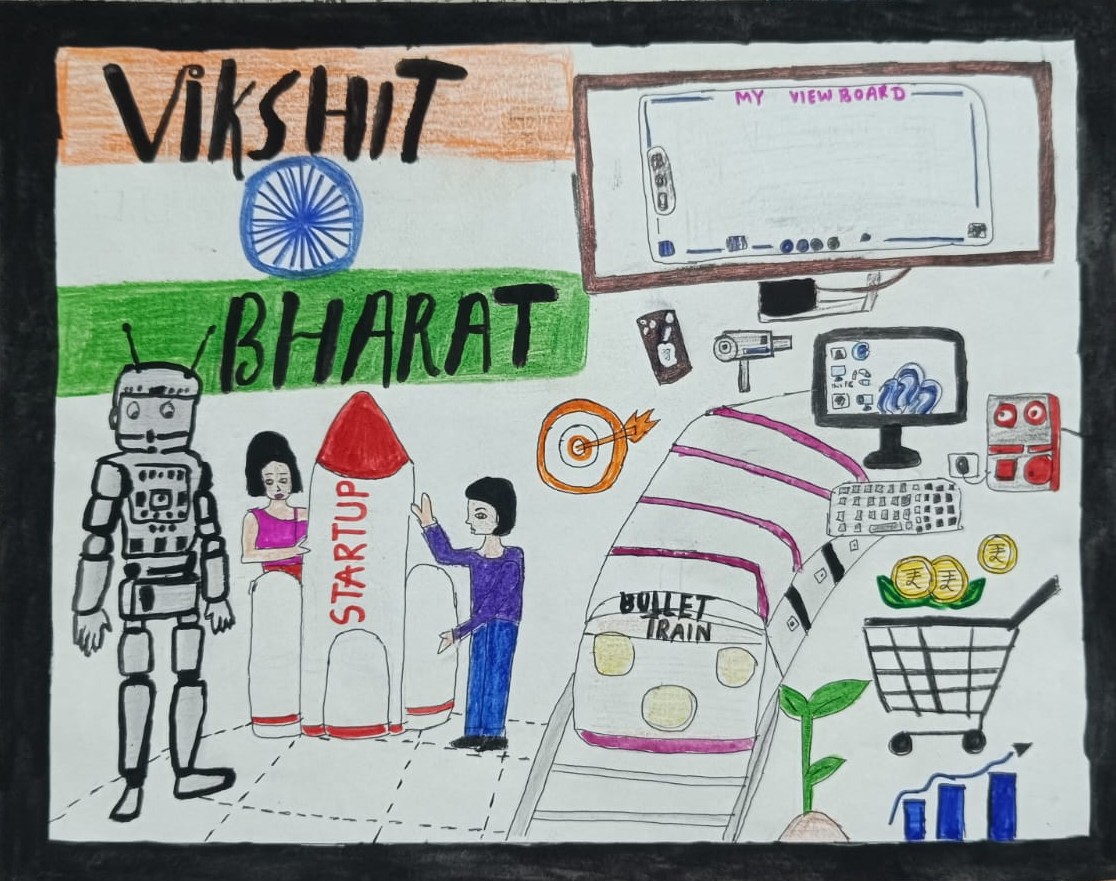 VIKSHIT
BHARAT
MY VIEWBOARD
STARTUP
BULLET
TRAIN
₹
₹
₹